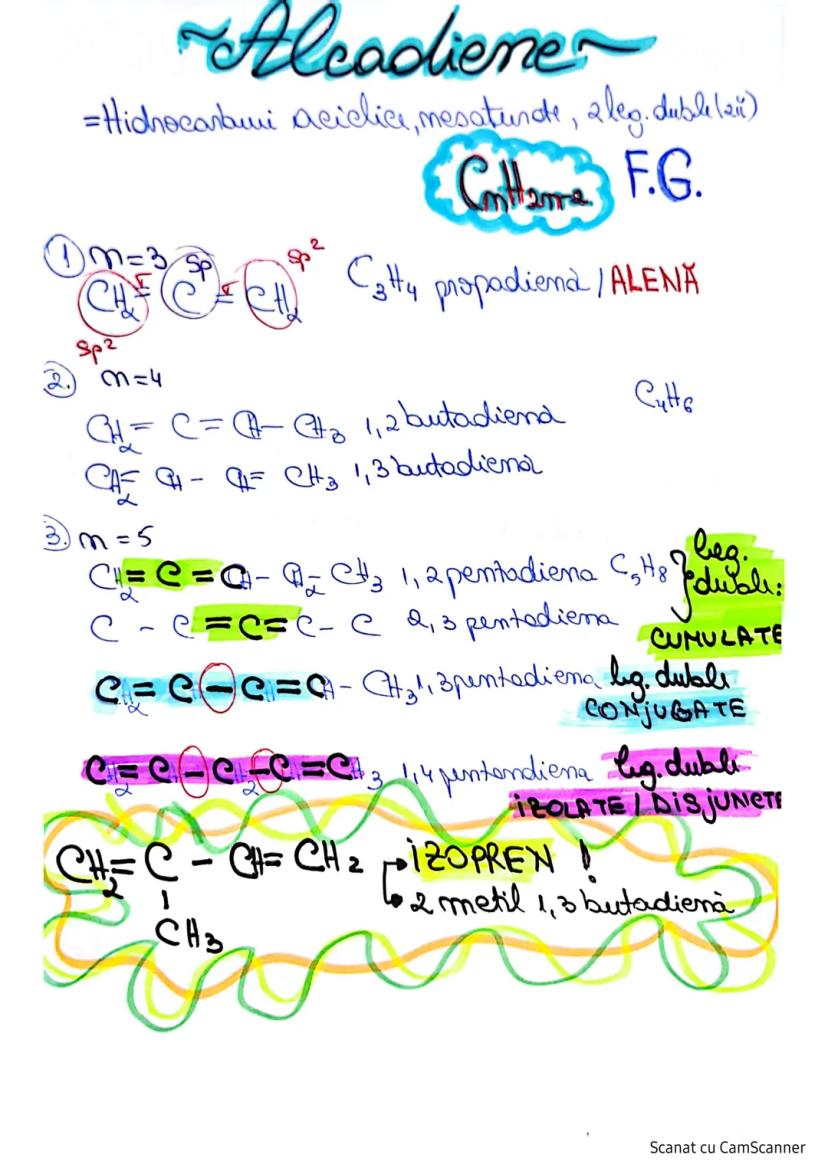 ~Alcadiene~
=Hidrocarburi aciclice, nesaturate, 2 leg. duble (2π)
CnH2n-2 F.G.
① n=3
CH2 = C = CH2 C3H4 propadienă / ALENĂ
sp2 π sp π sp2
2. n=4 C4H6
CH2 = C = CH - CH3 1,2 butadienă
CH2 = CH - CH = CH3 1,3 butadienă
3. n = 5
CH2 = C = CH - CH2 - CH3 1,2 pentadiena C5H8 } leg. duble:
C - C = C = C - C 2,3 pentadiena CUMULATE
CH2 = CH - CH = CH - CH3 1,3 pentadiena leg. duble
CONJUGATE
CH2 = CH - CH2 - CH = CH3 1,4 pentandiena leg. duble
iZOLATE / DISJUNCTE
CH2 = C - CH = CH2 → iZOPREN !
CH3 → 2 metil 1,3 butadienă
Scanat cu CamScanner